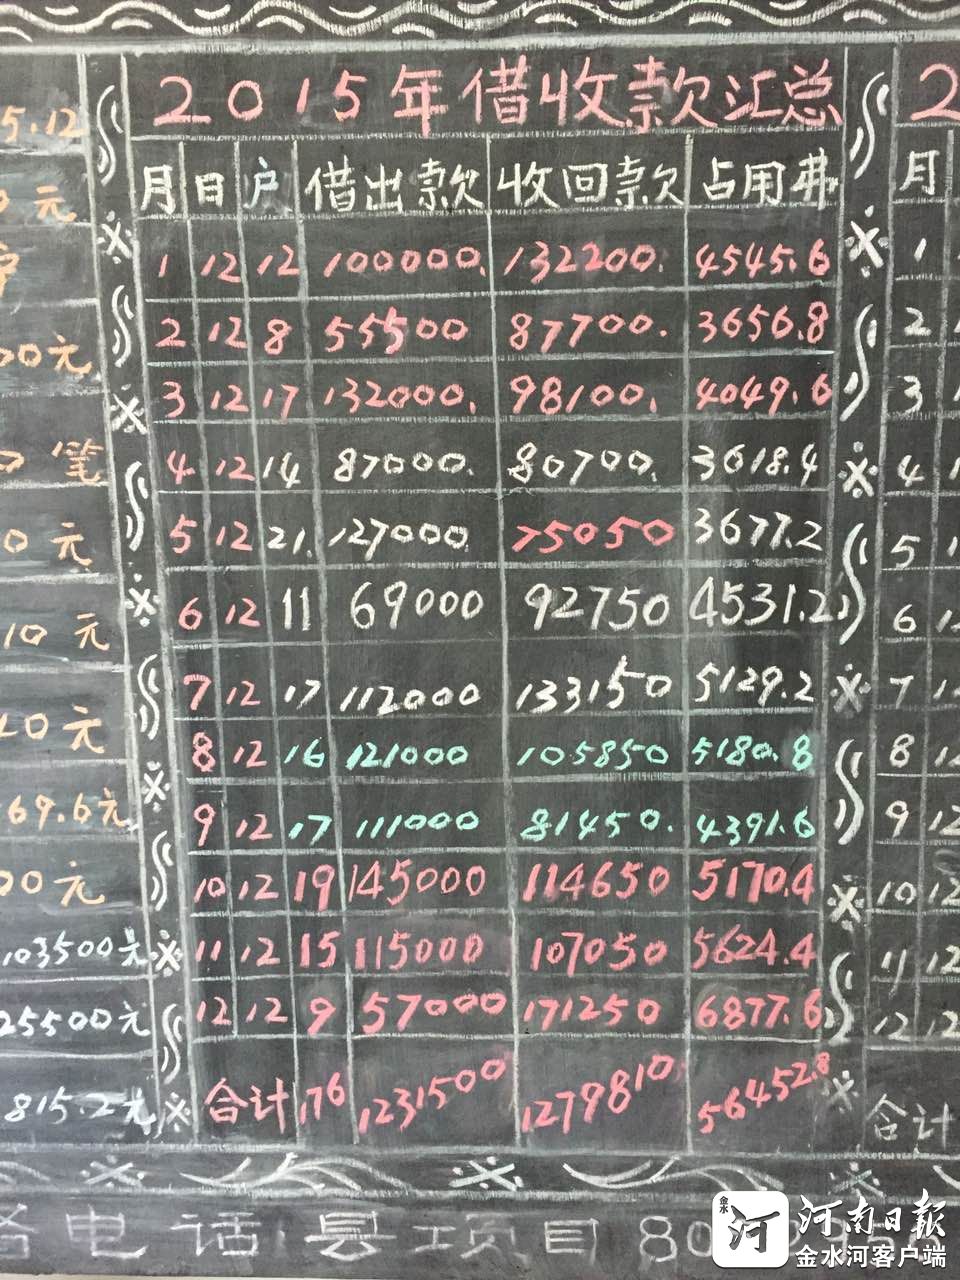 2015年借收款汇总
月 日 户 借出款 收回款 占用费
1 12 12 100000. 132200. 4545.6
2 12 8 55500 87700. 3656.8
3 12 17 132000. 98100. 4049.6
4 12 14 87000. 80700. 3618.4
5 12 21. 127000. 75050 3677.2
6 12 11 69000 92750 4531.2
7 12 17 112000 133150 5129.2
8 12 16 121000 105850 5180.8
9 12 17 111000 81450. 4391.6
10 12 19 145000 114650 5170.4
11 12 15 115000 107050 5624.4
12 12 9 57000 171250 6877.6
合计 176 1231500 1279810 56452.8
5.12
元
00元
笔
0元
10元
40元
69.6元
00元
103500元
25500元
815.2元
2
月
1
2
3
4
5
6
7
8
9
10 12
11 12
12 12
合计
电话县项目80
金水河
河南日报
金水河客户端